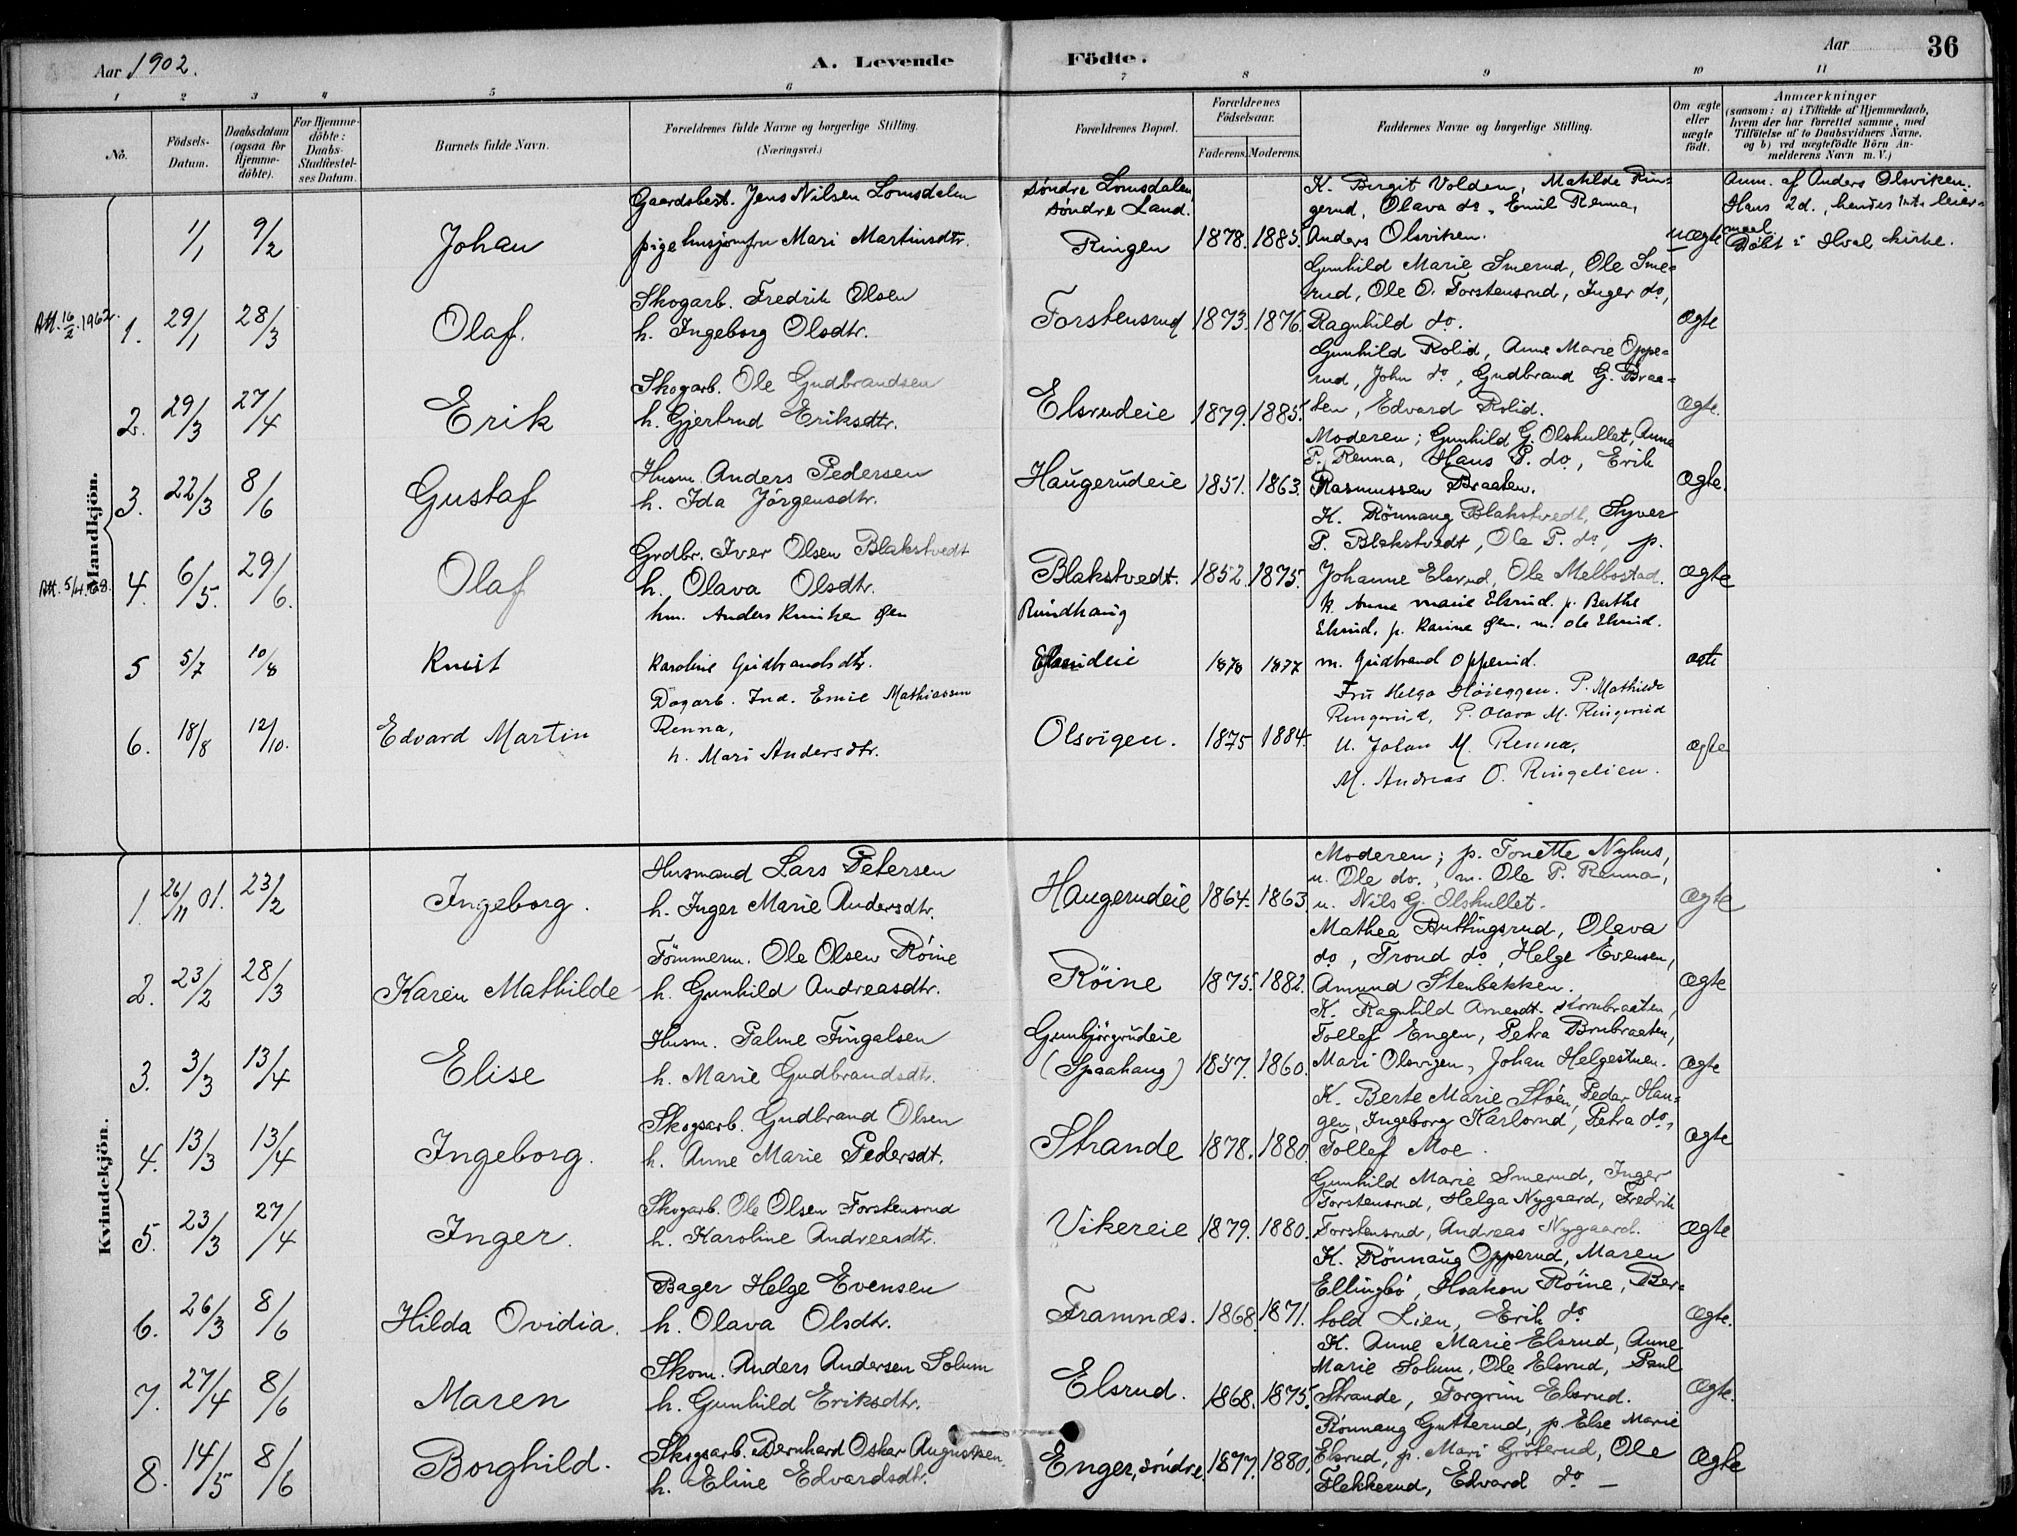 Aar 1902.
A. Levende Födte.
Aar
36
1 2 3 4 5 6 7 8 9 10 11
No.
Födsels-Datum.
Daabsdatum (ogsaa for Hjemme-döbte).
For Hjemme-döbte: Daabs-Stadfæstel-ses Datum.
Barnets fulde Navn.
Forældrenes fulde Navne og borgerlige Stilling. (Næringsvei.)
Forældrenes Bopæl.
Forældrenes Födselsaar.
Faderens. Moderens.
Faddernes Navne og borgerlige Stilling.
Om ægte eller uægte födt.
Anmærkninger
(saasom: a) i Tilfælde af Hjemmedaab,
hvem der har forrettet samme, med
Tilföielse af to Daabsvidners Navne.
og b) ved uægtefödte Börn An-
melderens Navn m. V.)
Mandkjön.
Gaardsbest. Jens Nilsen Lomsdalen
Søndre Lomsdalen
søndre Land.
K. Birgit Volden, Matilde Rin-
gerud, Olava do, Emil Renna,
Anm. af Anders Olsviken.
Hans 2d., hendes 1ste leier-
maal.
1/1 9/2 Johan pige husjomfru Mari Martinsdtr. Ringen 1878. 1885. Anders Olsviken. uægte Døbt i Hval kirke.
Skogarb. Fredrik Olsen
Gunhild Marie Smerud, Ole Sme-
rud, Ole O. Forstensrud, Inger do,
Att. 16/2 1962. 1. 29/1 28/3 Olaf. h. Ingeborg Olsdtr. Forstensrud 1873. 1876. Ragnhild do. ægte
Skogarb. Ole Gudbrandsen
Gunhild Rolid, Anne Marie Oppe-
rud, John do, Gudbrand G. Braa-
2. 29/3 27/4 Erik h. Gjertrud Eriksdtr. Elsrudeie 1879. 1885. ten, Edvard Rolid. ægte.
Husm. Anders Pedersen
Moderen; Gunhild G. Olshullet, Anna
P. Renna, Hans P. do, Erik
3. 22/3 8/6 Gustaf h. Ida Jørgensdtr. Haugerudeie 1851. 1863. Rasmussen Braaten. ægte.
Grdbr. Iver Olsen Blakstvedt
K. Rönnaug Blakstvedt, Syver
P. Blakstvedt, Ole P. do, p.
4. 6/5. 29/6. Olaf h. Olava Olsdtr. Blakstvedt. 1852. 1875. Johanne Elsrud, Ole Melbostad. ægte
hm. Anders Knutsen
Rundhaug
k. Anne Marie Elsrud. p. Berthe
Elsrud, p. Karine, m. Ole Elsrud.
5 5/7 10/8 Knut Karoline Gudbrandsdtr. 1877 m. Gudbrand Opperud. ægte
Dagarb. Ind. Emil Mathiassen
Renna,
Fru Helga Høieggen. P. Mathilde
Ringerud, P. Olava M. Ringerud
6. 18/8 12/10. Edvard Martin h. Mari Andersdtr. Olsvigen. 1875 1884. U. Johan M. Renna, ægte
M. Andreas O. Ringelien.
Kvindekjön.
Husmand Lars Petersen
Moderen; p. Tonette Nyhus,
u. Ole do., m. Ole P. Renna,
1. 26/11 01. 23/2 Ingeborg. h. Inger Marie Andersdtr. Haugerudeie 1864. 1863. u. Nils G. Olshullet. ægte
Tømmerm. Ole Olsen Röine
Mathea Buttingsrud, Olava
do, Trond do, Helge Evensen,
2. 23/2 28/3 Karen Mathilde h. Gunhild Andreasdtr. Röine 1875. 1882. Amund Stenbekken. ægte
Husm. Palme Fingalsen
Gunbjörgrudeie
K. Ragnhild Arnesdt. Kornbraaten,
Tollef Engen, Petra Brubraaten,
3. 3/3 13/4 Elise h. Marie Gudbrandsdtr. (Spaahaug) 1857. 1860. Mari Olsvigen, Johan Helgestuen. ægte
Skogsarb. Gudbrand Olsen
K. Berte Marie Sköen, Peder Hau-
gen, Ingeborg Karlsrud, Petra do,
4. 13/3 13/4 Ingeborg. h. Anne Marie Pedersdt. Strande 1878. 1880. Tollef Moe. ægte
Skogarb. Ole Olsen Forstensrud
Gunhild Marie Smerud, Inger
Forstensrud, Helga Nygaard, Fredrik
5. 23/3 27/4 Inger. h. Karoline Andreasdtr. Vikereie 1879. 1880. Forstensrud, Andreas Nygaard. ægte
Bager Helge Evensen
K. Rönnaug Opperud, Maren
Ellingbö, Haakon Röine, Ber-
6. 26/3 8/6 Hilda Ovidia. h. Olava Olsdtr. Framnæs. 1868. 1871. told Lien, Erik do ægte.
Skom. Anders Andersen Solum
K. Anne Marie Elsrud, Anne
Marie Solum, Ole Elsrud, Paul
7. 27/4 8/6 Maren h. Gunhild Eriksdtr. Elsrud. 1868. 1875. Strande, Torgrim Elsrud. ægte.
Rönnaug Gutterud, p. Else Marie
Skogsarb. Bernhard Oskar Augustsen
8. 14/5 8/6 Borghild. h. Eline Edvardsdtr. Enger, søndre 1877. 1880. Elsrud, p. Mari Gröterud, Ole ægte
Flekkerud, Edvard do —